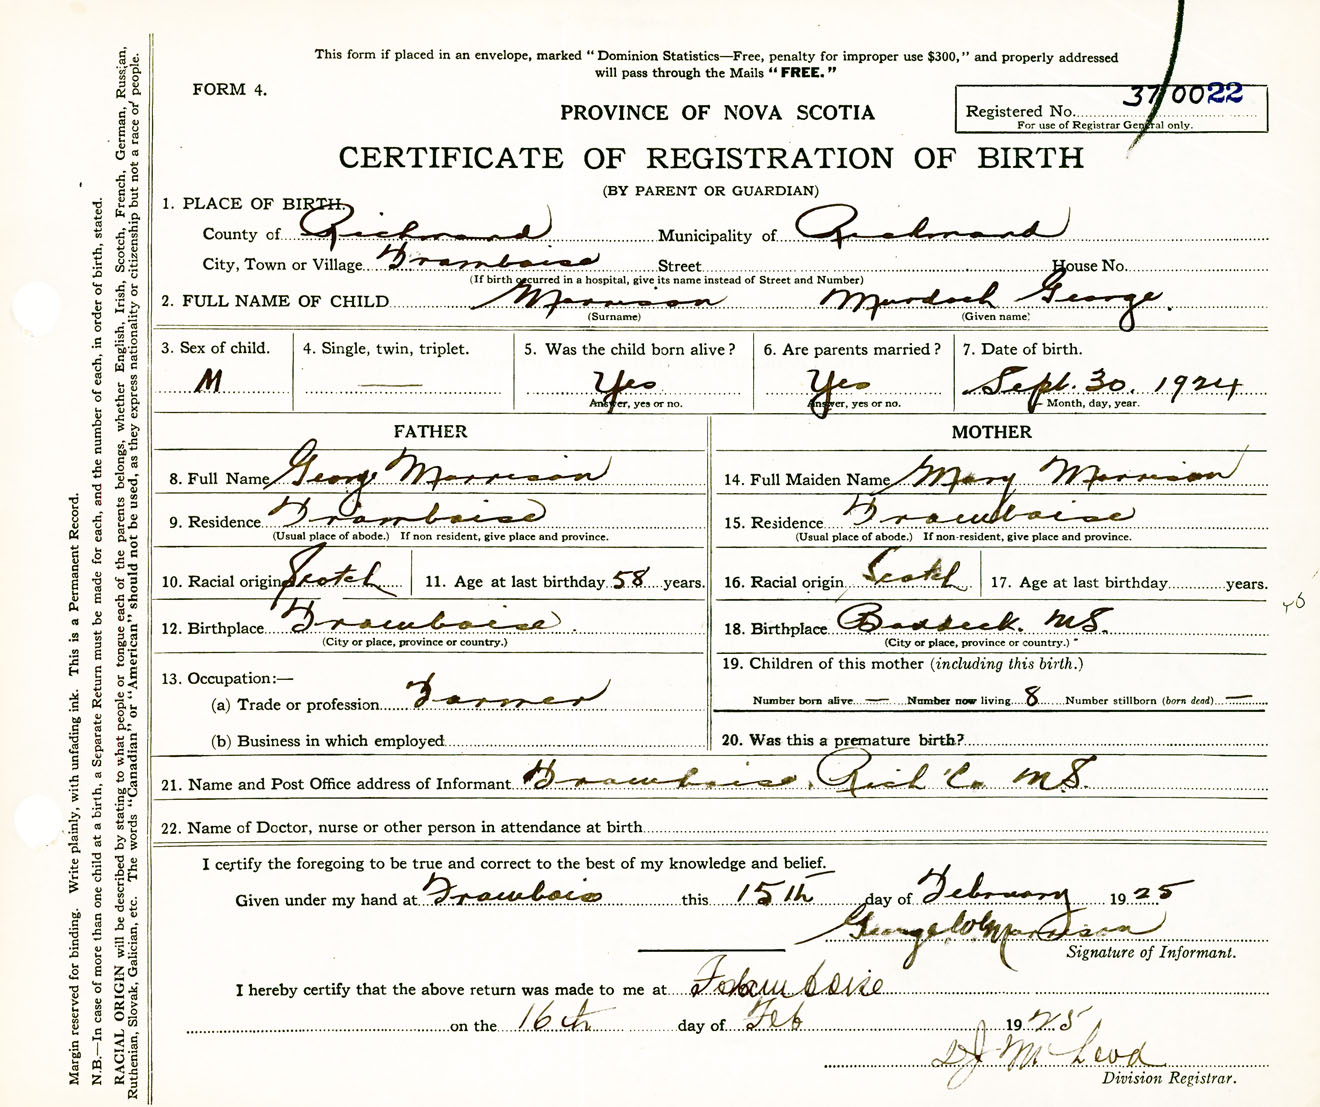 This form if placed in an envelope, marked "Dominion Statistics—Free, penalty for improper use $300," and properly addressed
will pass through the Mails "FREE."
FORM 4.
370022
PROVINCE OF NOVA SCOTIA
Registered No.
For use of Registrar General only.
CERTIFICATE OF REGISTRATION OF BIRTH
(BY PARENT OR GUARDIAN)
1. PLACE OF BIRTH.
County of Richmond Municipality of Richmond
City, Town or Village Framboise Street House No.
(If birth occurred in a hospital, give its name instead of Street and Number)
2. FULL NAME OF CHILD Morrison Murdoch George.
(Surname) (Given name)
3. Sex of child. 4. Single, twin, triplet. 5. Was the child born alive? 6. Are parents married? 7. Date of birth.
M — Yes Yes Sept. 30. 1924
Answer, yes or no. Answer, yes or no. Month, day, year.
FATHER MOTHER
8. Full Name George Morrison 14. Full Maiden Name Mary Morrison
9. Residence Framboise 15. Residence Framboise
(Usual place of abode.) If non resident, give place and province. (Usual place of abode.) If non-resident, give place and province.
10. Racial origin Scotch 11. Age at last birthday 58 years. 16. Racial origin Scotch 17. Age at last birthday years.
12. Birthplace Framboise. 18. Birthplace Baddeck. N.S.
(City or place, province or country.) (City or place, province or country.)
13. Occupation:— 19. Children of this mother (including this birth.)
(a) Trade or profession Farmer Number born alive — Number now living 8 Number stillborn (born dead) —
(b) Business in which employed 20. Was this a premature birth?
21. Name and Post Office address of Informant Framboise, Rich Co. N.S.
22. Name of Doctor, nurse or other person in attendance at birth
I certify the foregoing to be true and correct to the best of my knowledge and belief.
Given under my hand at Frambois this 15th day of February 1925
George W Morrison
Signature of Informant.
I hereby certify that the above return was made to me at Framboise
on the 16th day of Feb 1925
D J McLeod
Division Registrar.
Margin reserved for binding. Write plainly, with unfading ink. This is a Permanent Record.
N.B.—In case of more than one child at a birth, a Separate Return must be made for each, and the number of each, in order of birth, stated.
RACIAL ORIGIN will be described by stating to what people or tongue each of the parents belongs, whether English, Irish, Scotch, French, German, Russian,
Ruthenian, Slovak, Galician, etc. The words "Canadian" or "American" should not be used, as they express nationality or citizenship but not a race or people.